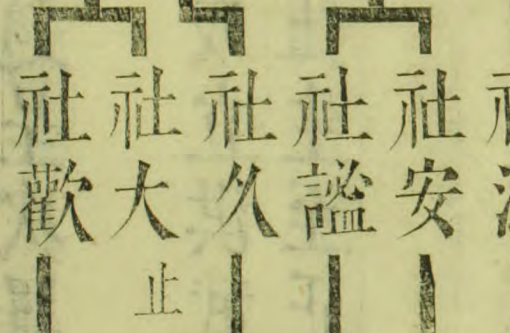 社安
社謚
社久
社大
止
社歡